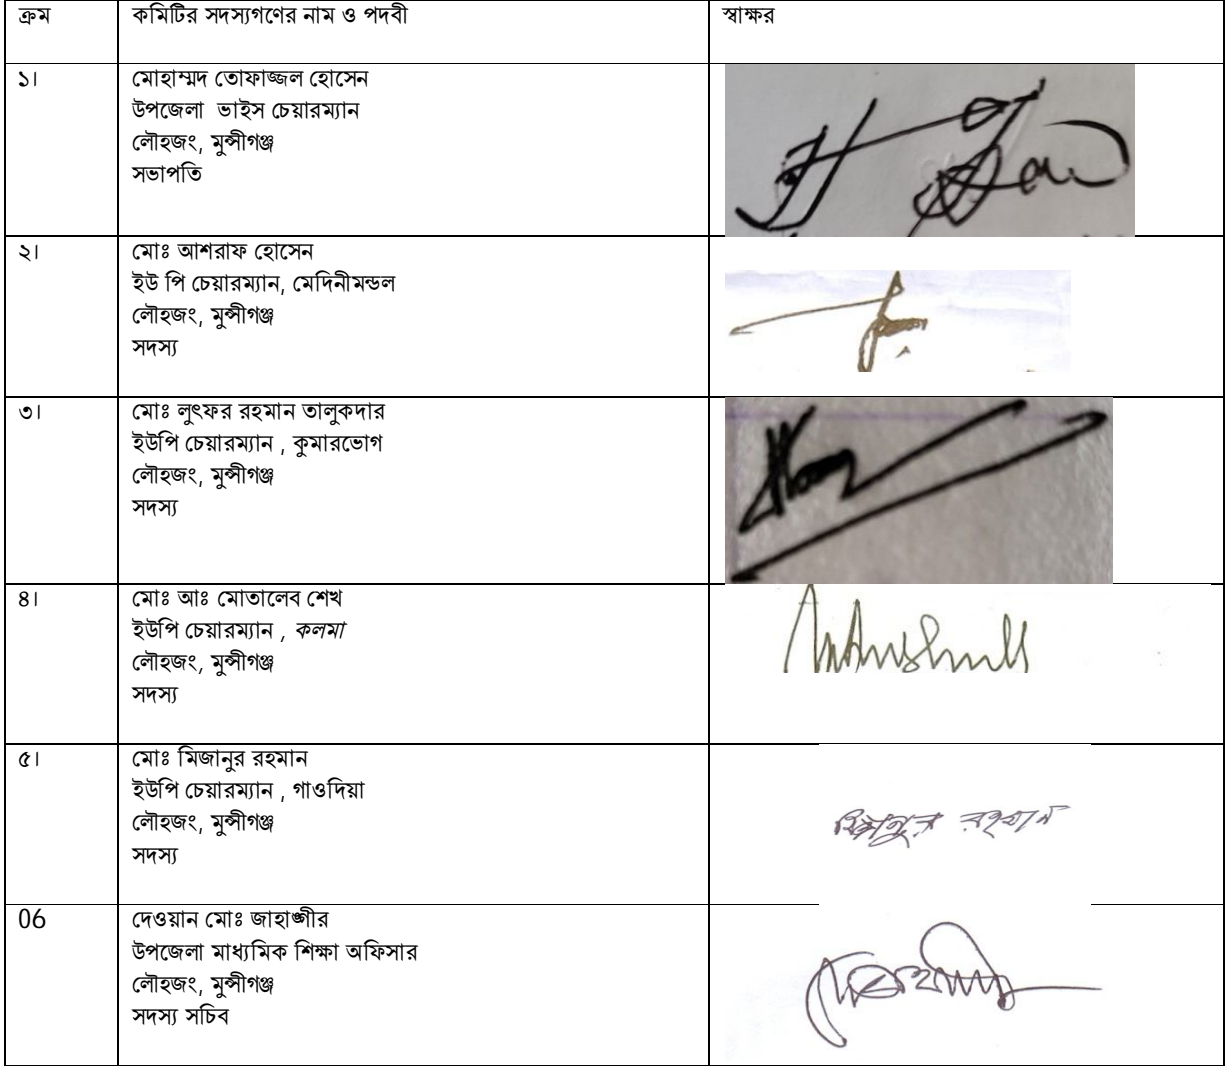 ক্রম
কমিটির সদস্যগণের নাম ও পদবী
স্বাক্ষর
১।
মোহাম্মদ তোফাজ্জল হোসেন
উপজেলা ভাইস চেয়ারম্যান
লৌহজং, মুন্সীগঞ্জ
সভাপতি
২।
মোঃ আশরাফ হোসেন
ইউ পি চেয়ারম্যান, মেদিনীমন্ডল
লৌহজং, মুন্সীগঞ্জ
সদস্য
৩।
মোঃ লুৎফর রহমান তালুকদার
ইউপি চেয়ারম্যান , কুমারভোগ
লৌহজং, মুন্সীগঞ্জ
সদস্য
৪।
মোঃ আঃ মোতালেব শেখ
ইউপি চেয়ারম্যান , কলমা
লৌহজং, মুন্সীগঞ্জ
সদস্য
৫।
মোঃ মিজানুর রহমান
ইউপি চেয়ারম্যান , গাওদিয়া
লৌহজং, মুন্সীগঞ্জ
সদস্য
রহমান
06
দেওয়ান মোঃ জাহাঙ্গীর
উপজেলা মাধ্যমিক শিক্ষা অফিসার
লৌহজং, মুন্সীগঞ্জ
সদস্য সচিব